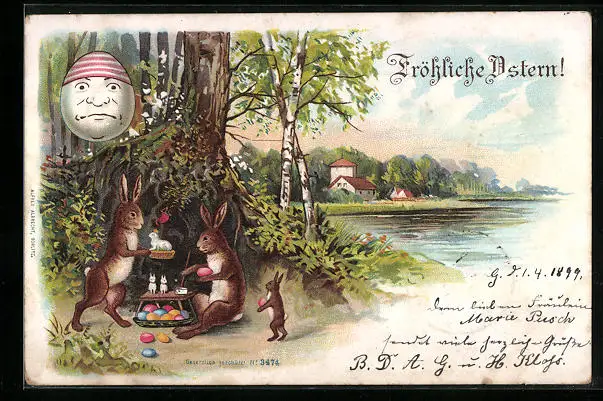 Fröhliche Ostern!
G. d. 1.4.1899.
dem lieben Fräulein
Marie Pusch
sendet viele herzlich. Grüße
B. D. A. G. u. H. Klohs.
Gesetzlich geschützt No 3474